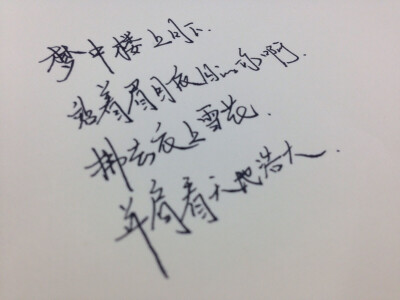 梦中楼上月下.
站着眉目依旧的你啊.
拂去衣上雪花.
并肩看天地浩大.